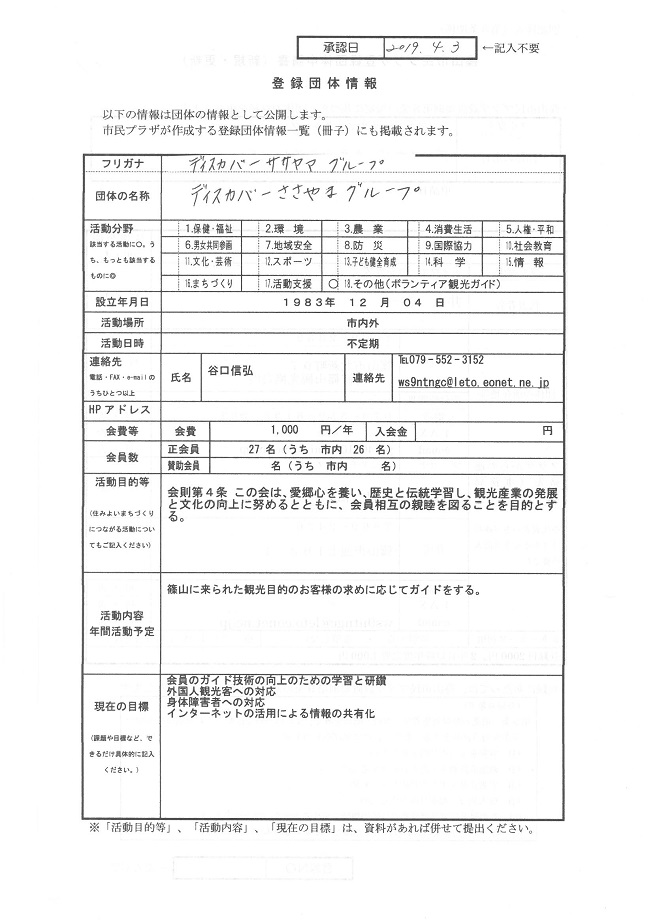 承認日 2019.4.3 ←記入不要
登録団体情報
以下の情報は団体の情報として公開します。
市民プラザが作成する登録団体情報一覧（冊子）にも掲載されます。
フリガナ ディスカバーササヤマ グループ
団体の名称 ディスカバーささやまグループ
活動分野 1.保健・福祉 2.環 境 3.農 業 4.消費生活 5.人権・平和
該当する活動に〇。う 6.男女共同参画 7.地域安全 8.防 災 9.国際協力 10.社会教育
ち、もっとも該当する 11.文化・芸術 12.スポーツ 13.子ども健全育成 14.科 学 15.情 報
ものに◎
16.まちづくり 17.活動支援 〇 18.その他(ボランティア観光ガイド)
設立年月日 1983年 12 月 04 日
活動場所 市内外
活動日時 不定期
連絡先
電話・FAX・e-mailの
うちひとつ以上
氏名 谷口信弘 連絡先 ℡079-552-3152
ws9ntngc@leto.eonet.ne.jp
HPアドレス
会費等 会費 1,000 円／年 入会金 円
会員数 正会員 27 名（うち 市内 26 名）
賛助会員 名（うち 市内 名）
活動目的等
(住みよいまちづくり
につながる活動につい
てもご記入ください)
会則第４条 この会は、愛郷心を養い、歴史と伝統学習し、観光産業の発展
と文化の向上に努めるとともに、会員相互の親睦を図ることを目的とす
る。
活動内容
年間活動予定
篠山に来られた観光目的のお客様の求めに応じてガイドをする。
現在の目標
(課題や目標など、で
きるだけ具体的に記入
ください。)
会員のガイド技術の向上のための学習と研鑽
外国人観光客への対応
身体障害者への対応
インターネットの活用による情報の共有化
※「活動目的等」、「活動内容」、「現在の目標」は、資料があれば併せて提出ください。